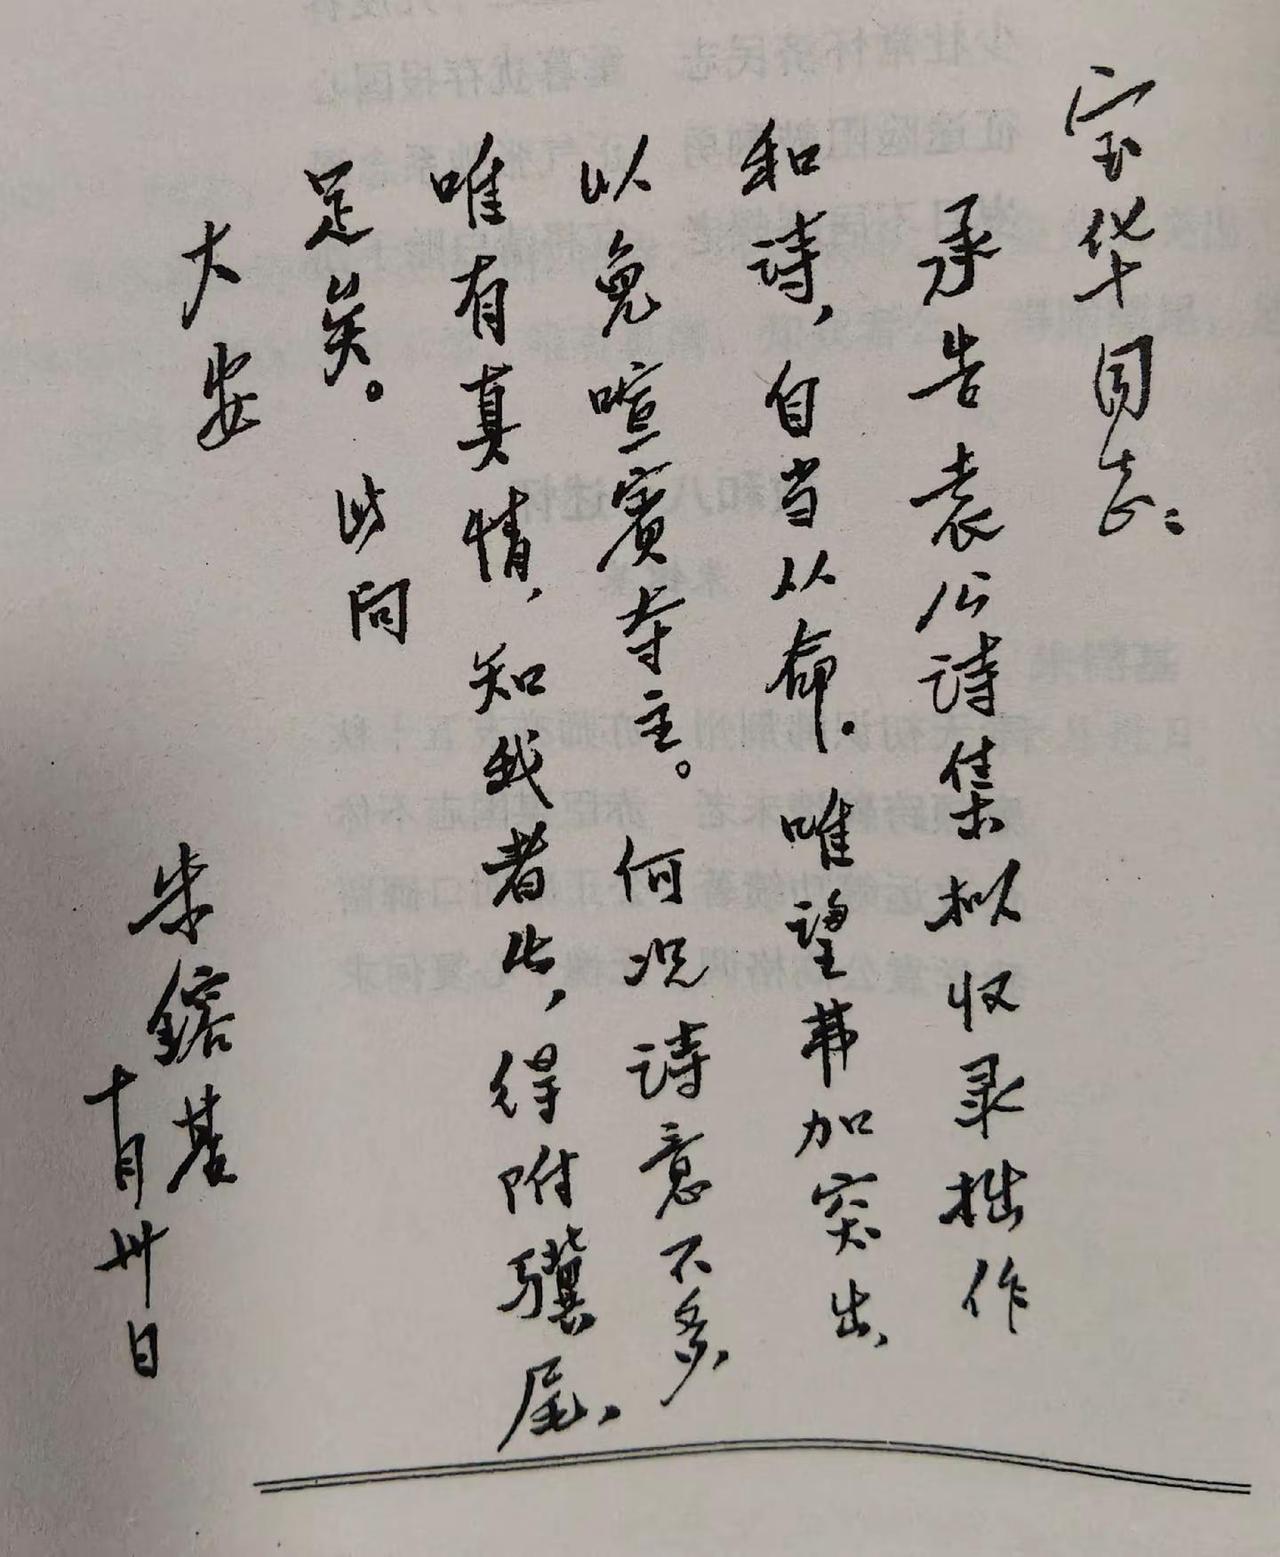 宝华同志：
承告袁公诗集拟收录拙作
和诗，自当从命。唯望弗加突出，
以免喧宾夺主。何况诗意不多，
唯有真情，知我者此，得附骥尾，
足矣。此问
大安
朱鎔基
十月卅日